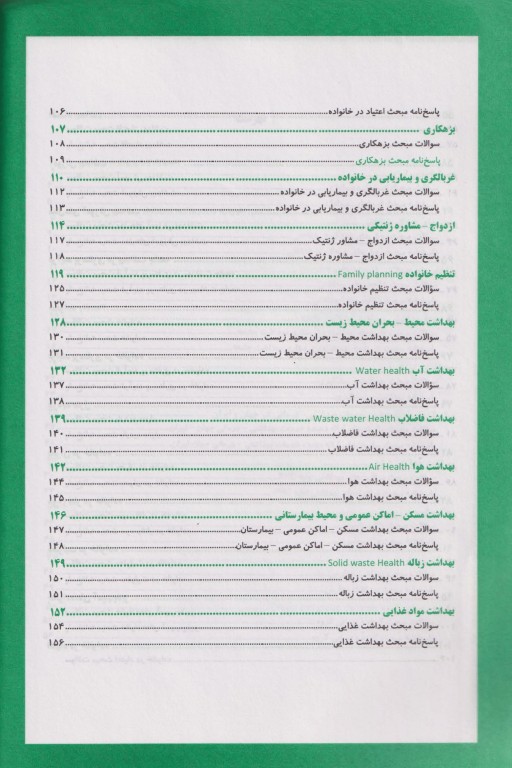 پاسخ‌نامه مبحث اعتیاد در خانواده ۱۰۶
بزهکاری ۱۰۷
سوالات مبحث بزهکاری ۱۰۸
پاسخ‌نامه مبحث بزهکاری ۱۰۹
غربالگری و بیماریابی در خانواده ۱۱۰
سوالات مبحث غربالگری و بیماریابی در خانواده ۱۱۲
پاسخ‌نامه مبحث غربالگری و بیماریابی در خانواده ۱۱۳
ازدواج – مشاوره ژنتیکی ۱۱۴
سوالات مبحث ازدواج – مشاور ژنتیک ۱۱۷
پاسخ‌نامه مبحث ازدواج – مشاوره ژنتیک ۱۱۸
تنظیم خانواده Family planning ۱۱۹
سؤالات مبحث تنظیم خانواده ۱۲۵
پاسخ‌نامه مبحث تنظیم خانواده ۱۲۷
بهداشت محیط – بحران محیط زیست ۱۲۸
سوالات مبحث بهداشت محیط – بحران محیط زیست ۱۳۰
پاسخ‌نامه مبحث بهداشت محیط – بحران محیط زیست ۱۳۱
بهداشت آب Water health ۱۳۲
سؤالات مبحث بهداشت آب ۱۳۷
پاسخ‌نامه مبحث بهداشت آب ۱۳۸
بهداشت فاضلاب Waste water Health ۱۳۹
سوالات مبحث بهداشت فاضلاب ۱۴۰
پاسخ‌نامه مبحث بهداشت فاضلاب ۱۴۱
بهداشت هوا Air Health ۱۴۲
سؤالات مبحث بهداشت هوا ۱۴۴
پاسخ‌نامه مبحث بهداشت هوا ۱۴۵
بهداشت مسکن – اماکن عمومی و محیط بیمارستانی ۱۴۶
سوالات مبحث بهداشت مسکن – اماکن عمومی – بیمارستان ۱۴۷
پاسخ‌نامه مبحث بهداشت مسکن – اماکن عمومی – بیمارستان ۱۴۸
بهداشت زباله Solid waste Health ۱۴۹
سوالات مبحث بهداشت زباله ۱۵۰
پاسخ‌نامه مبحث بهداشت زباله ۱۵۱
بهداشت مواد غذایی ۱۵۲
سوالات مبحث بهداشت غذایی ۱۵۴
پاسخ‌نامه مبحث بهداشت غذایی ۱۵۶